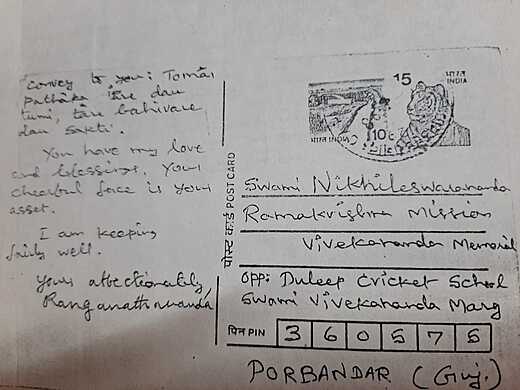 convey to you: Tomār
pathāka āre dau
tumi, tāre bahivare
dau sakti.
You have my love
and blessings. Your
cheerful face is your
asset.
I am keeping
fairly well.
Yours affectionately
Ranganathananda
पोस्ट कार्ड POST CARD
15
भारत
INDIA
10
भारत INDIA
Swami Nikhileswarananda
Ramakrishna Mission
Vivekananda Memorial
Opp: Duleep Cricket School
Swami Vivekananda Marg
पिन PIN 3 6 0 5 7 5
PORBANDAR (Guj.)